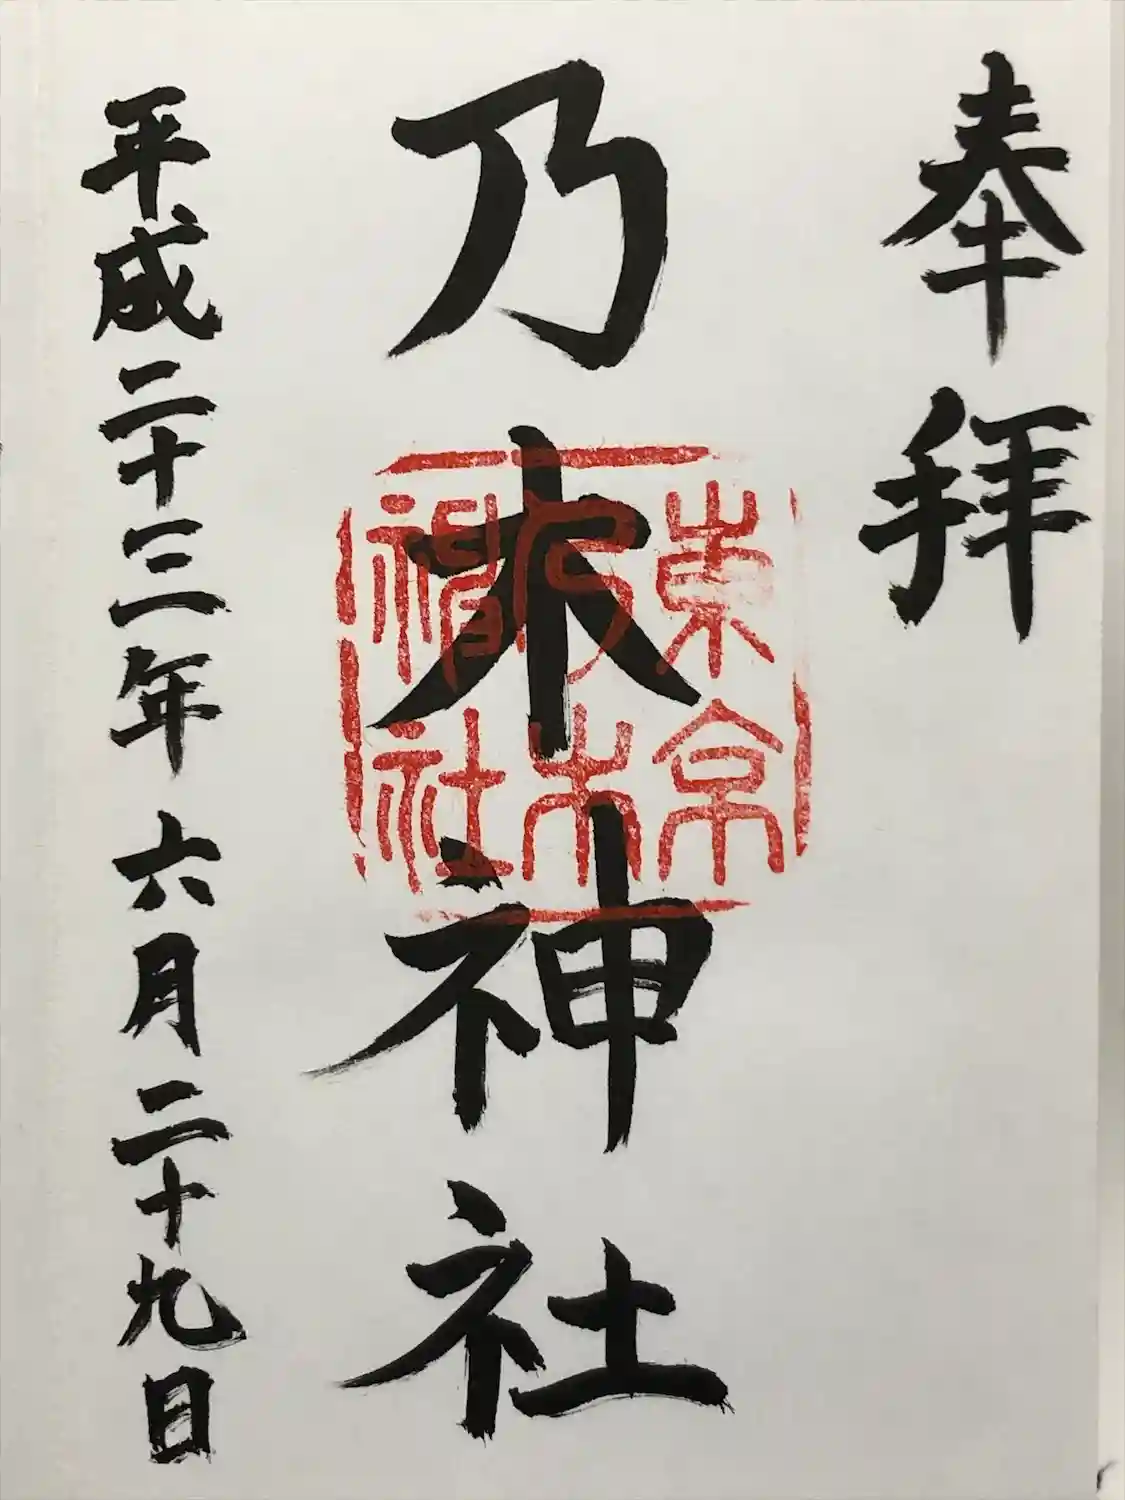 奉拝
乃木神社
東京
乃木
神社
平成二十三年六月二十九日